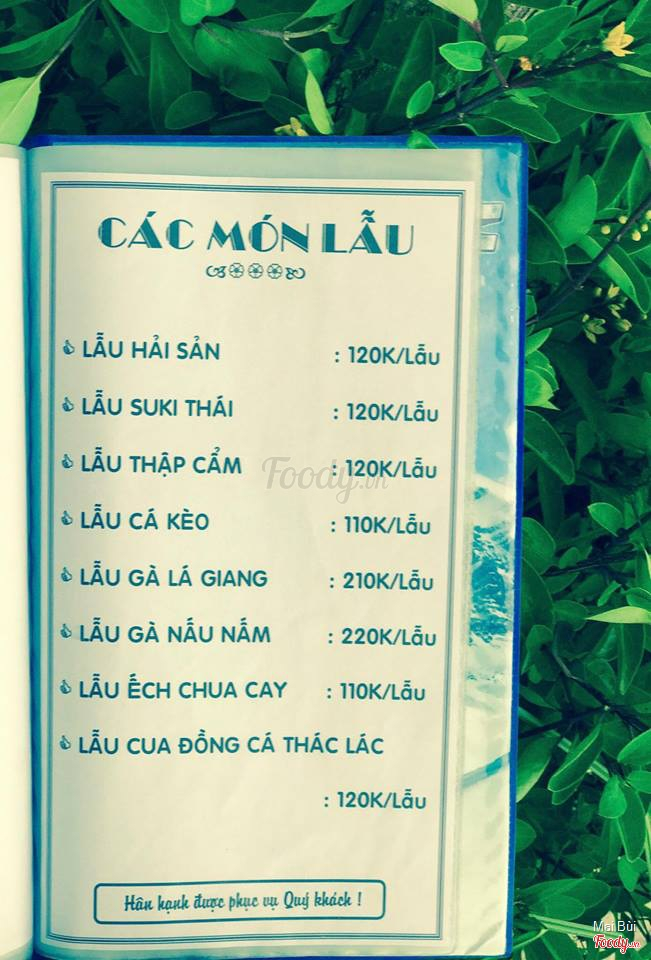 CÁC MÓN LẪU
LẪU HẢI SẢN : 120K/Lẫu
LẪU SUKI THÁI : 120K/Lẫu
LẪU THẬP CẨM : 120K/Lẫu
Foody.vn
LẪU CÁ KÈO : 110K/Lẫu
LẪU GÀ LÁ GIANG : 210K/Lẫu
LẪU GÀ NẤU NẤM : 220K/Lẫu
LẪU ẾCH CHUA CAY : 110K/Lẫu
LẪU CUA ĐỒNG CÁ THÁC LÁC
: 120K/Lẫu
Hân hạnh được phục vụ Quý khách !
Mai Bùi
Foody.vn